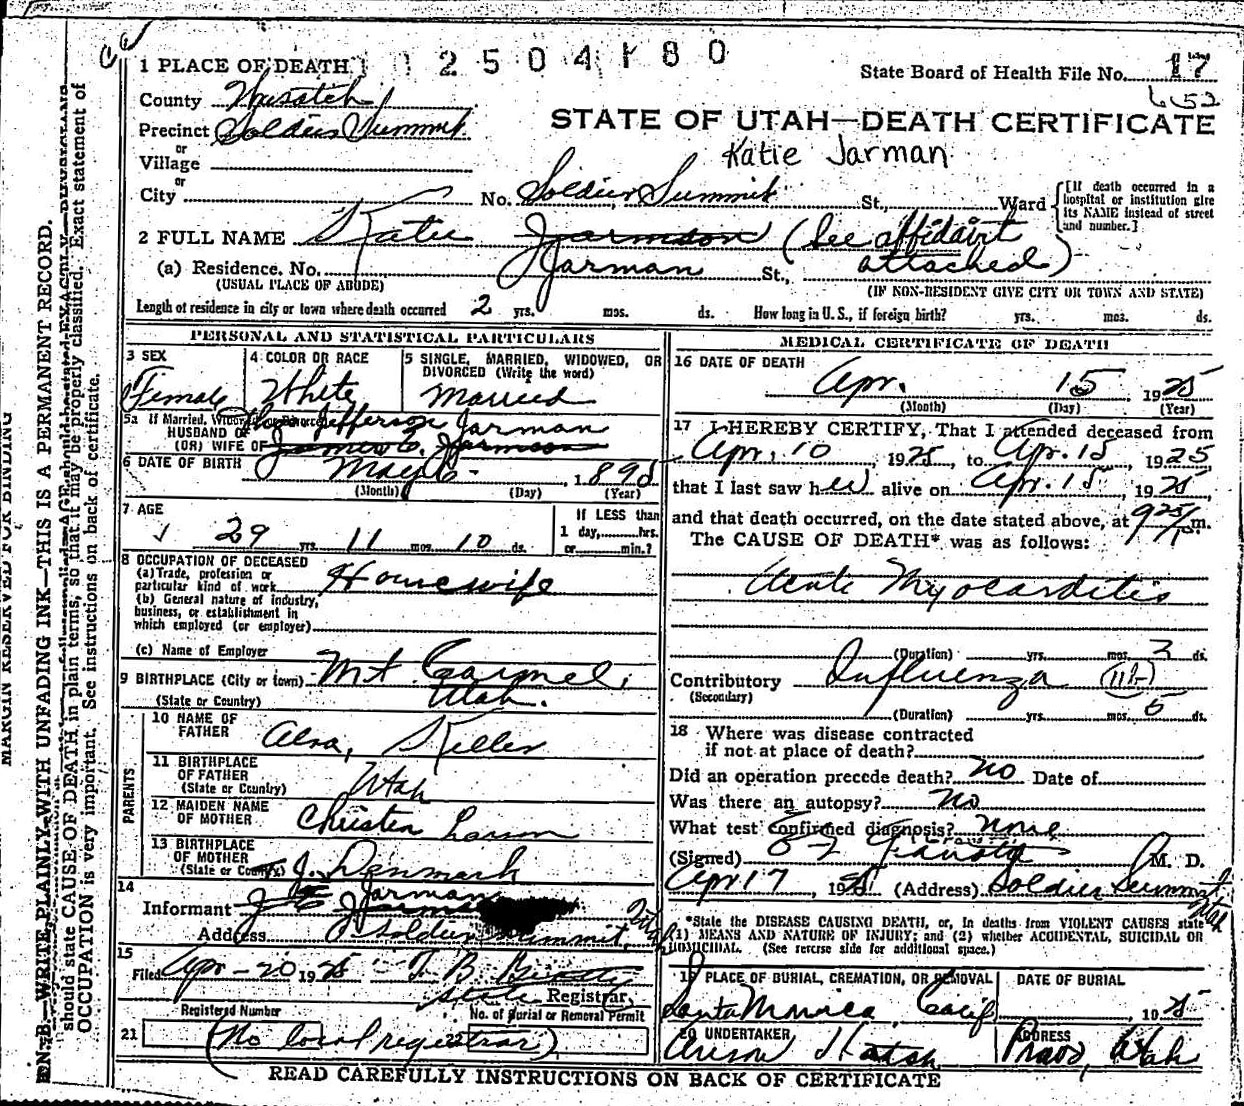 2504180
1 PLACE OF DEATH
State Board of Health File No. 17
652
County Wasatch
Precinct Soldier Summit
or
Village
or
City
STATE OF UTAH—DEATH CERTIFICATE
Katie Jarman
No. Soldier Summit St., Ward
[If death occurred in a hospital or institution give its NAME instead of street and number.]
2 FULL NAME Katie Jarmson (See affidavit attached)
Jarman
(a) Residence. No. St.,
(USUAL PLACE OF ABODE)
(IF NON-RESIDENT GIVE CITY OR TOWN AND STATE)
Length of residence in city or town where death occurred 2 yrs. mos. ds. How long in U. S., if foreign birth? yrs. mos. ds.
PERSONAL AND STATISTICAL PARTICULARS
3 SEX
Female
4 COLOR OR RACE
White
5 SINGLE, MARRIED, WIDOWED, OR DIVORCED (Write the word)
Married
5a If Married, Widowed or Divorced
HUSBAND OF
(OR) WIFE OF
Jefferson Jarman
6 DATE OF BIRTH May 6 - 1895
(Month) (Day) (Year)
7 AGE
29 yrs. 11 mos. 10 ds.
If LESS than
1 day, hrs.
or min.?
8 OCCUPATION OF DECEASED
(a) Trade, profession or particular kind of work Housewife
(b) General nature of industry, business, or establishment in which employed (or employer)
(c) Name of Employer
9 BIRTHPLACE (City or town) Mt Carmel,
(State or Country) Utah.
PARENTS
10 NAME OF FATHER Alra, Keller
11 BIRTHPLACE OF FATHER
(State or Country) Utah
12 MAIDEN NAME OF MOTHER Christen Larson
13 BIRTHPLACE OF MOTHER
(State or Country) Denmark
14
T. J. Jarman
Informant
Address Soldier Summit, Utah
15
Filed Apr - 20 1925
State Registrar.
Registered Number
No. of Burial or Removal Permit
21 (No local registrar) 22
MEDICAL CERTIFICATE OF DEATH
16 DATE OF DEATH
Apr. 15 1925
(Month) (Day) (Year)
17 I HEREBY CERTIFY, That I attended deceased from
Apr. 10, 1925, to Apr. 15, 1925
that I last saw her alive on Apr. 15, 1925,
and that death occurred, on the date stated above, at 9 25/ P m.
The CAUSE OF DEATH* was as follows:
Acute Myocarditis
(Duration) yrs. mos. 3 ds.
Contributory Influenza (11b)
(Secondary)
(Duration) yrs. mos. 5 ds.
18 Where was disease contracted
if not at place of death?
Did an operation precede death? no Date of
Was there an autopsy? no
What test confirmed diagnosis? none
(Signed) M. D.
Apr 17, 1925 (Address) Soldier Summit Utah
*State the DISEASE CAUSING DEATH, or, in deaths from VIOLENT CAUSES state
(1) MEANS AND NATURE OF INJURY; and (2) whether ACCIDENTAL, SUICIDAL OR
HOMICIDAL. (See reverse side for additional space.)
19 PLACE OF BURIAL, CREMATION, OR REMOVAL
Santa Monica, Calif
DATE OF BURIAL
1925
20 UNDERTAKER
ADDRESS
Provo, Utah
READ CAREFULLY INSTRUCTIONS ON BACK OF CERTIFICATE
MARGIN RESERVED FOR BINDING
N. B.—WRITE PLAINLY WITH UNFADING INK—THIS IS A PERMANENT RECORD.
should state CAUSE OF DEATH in plain terms, so that it may be properly classified. Exact statement of
OCCUPATION is very important. See instructions on back of certificate.